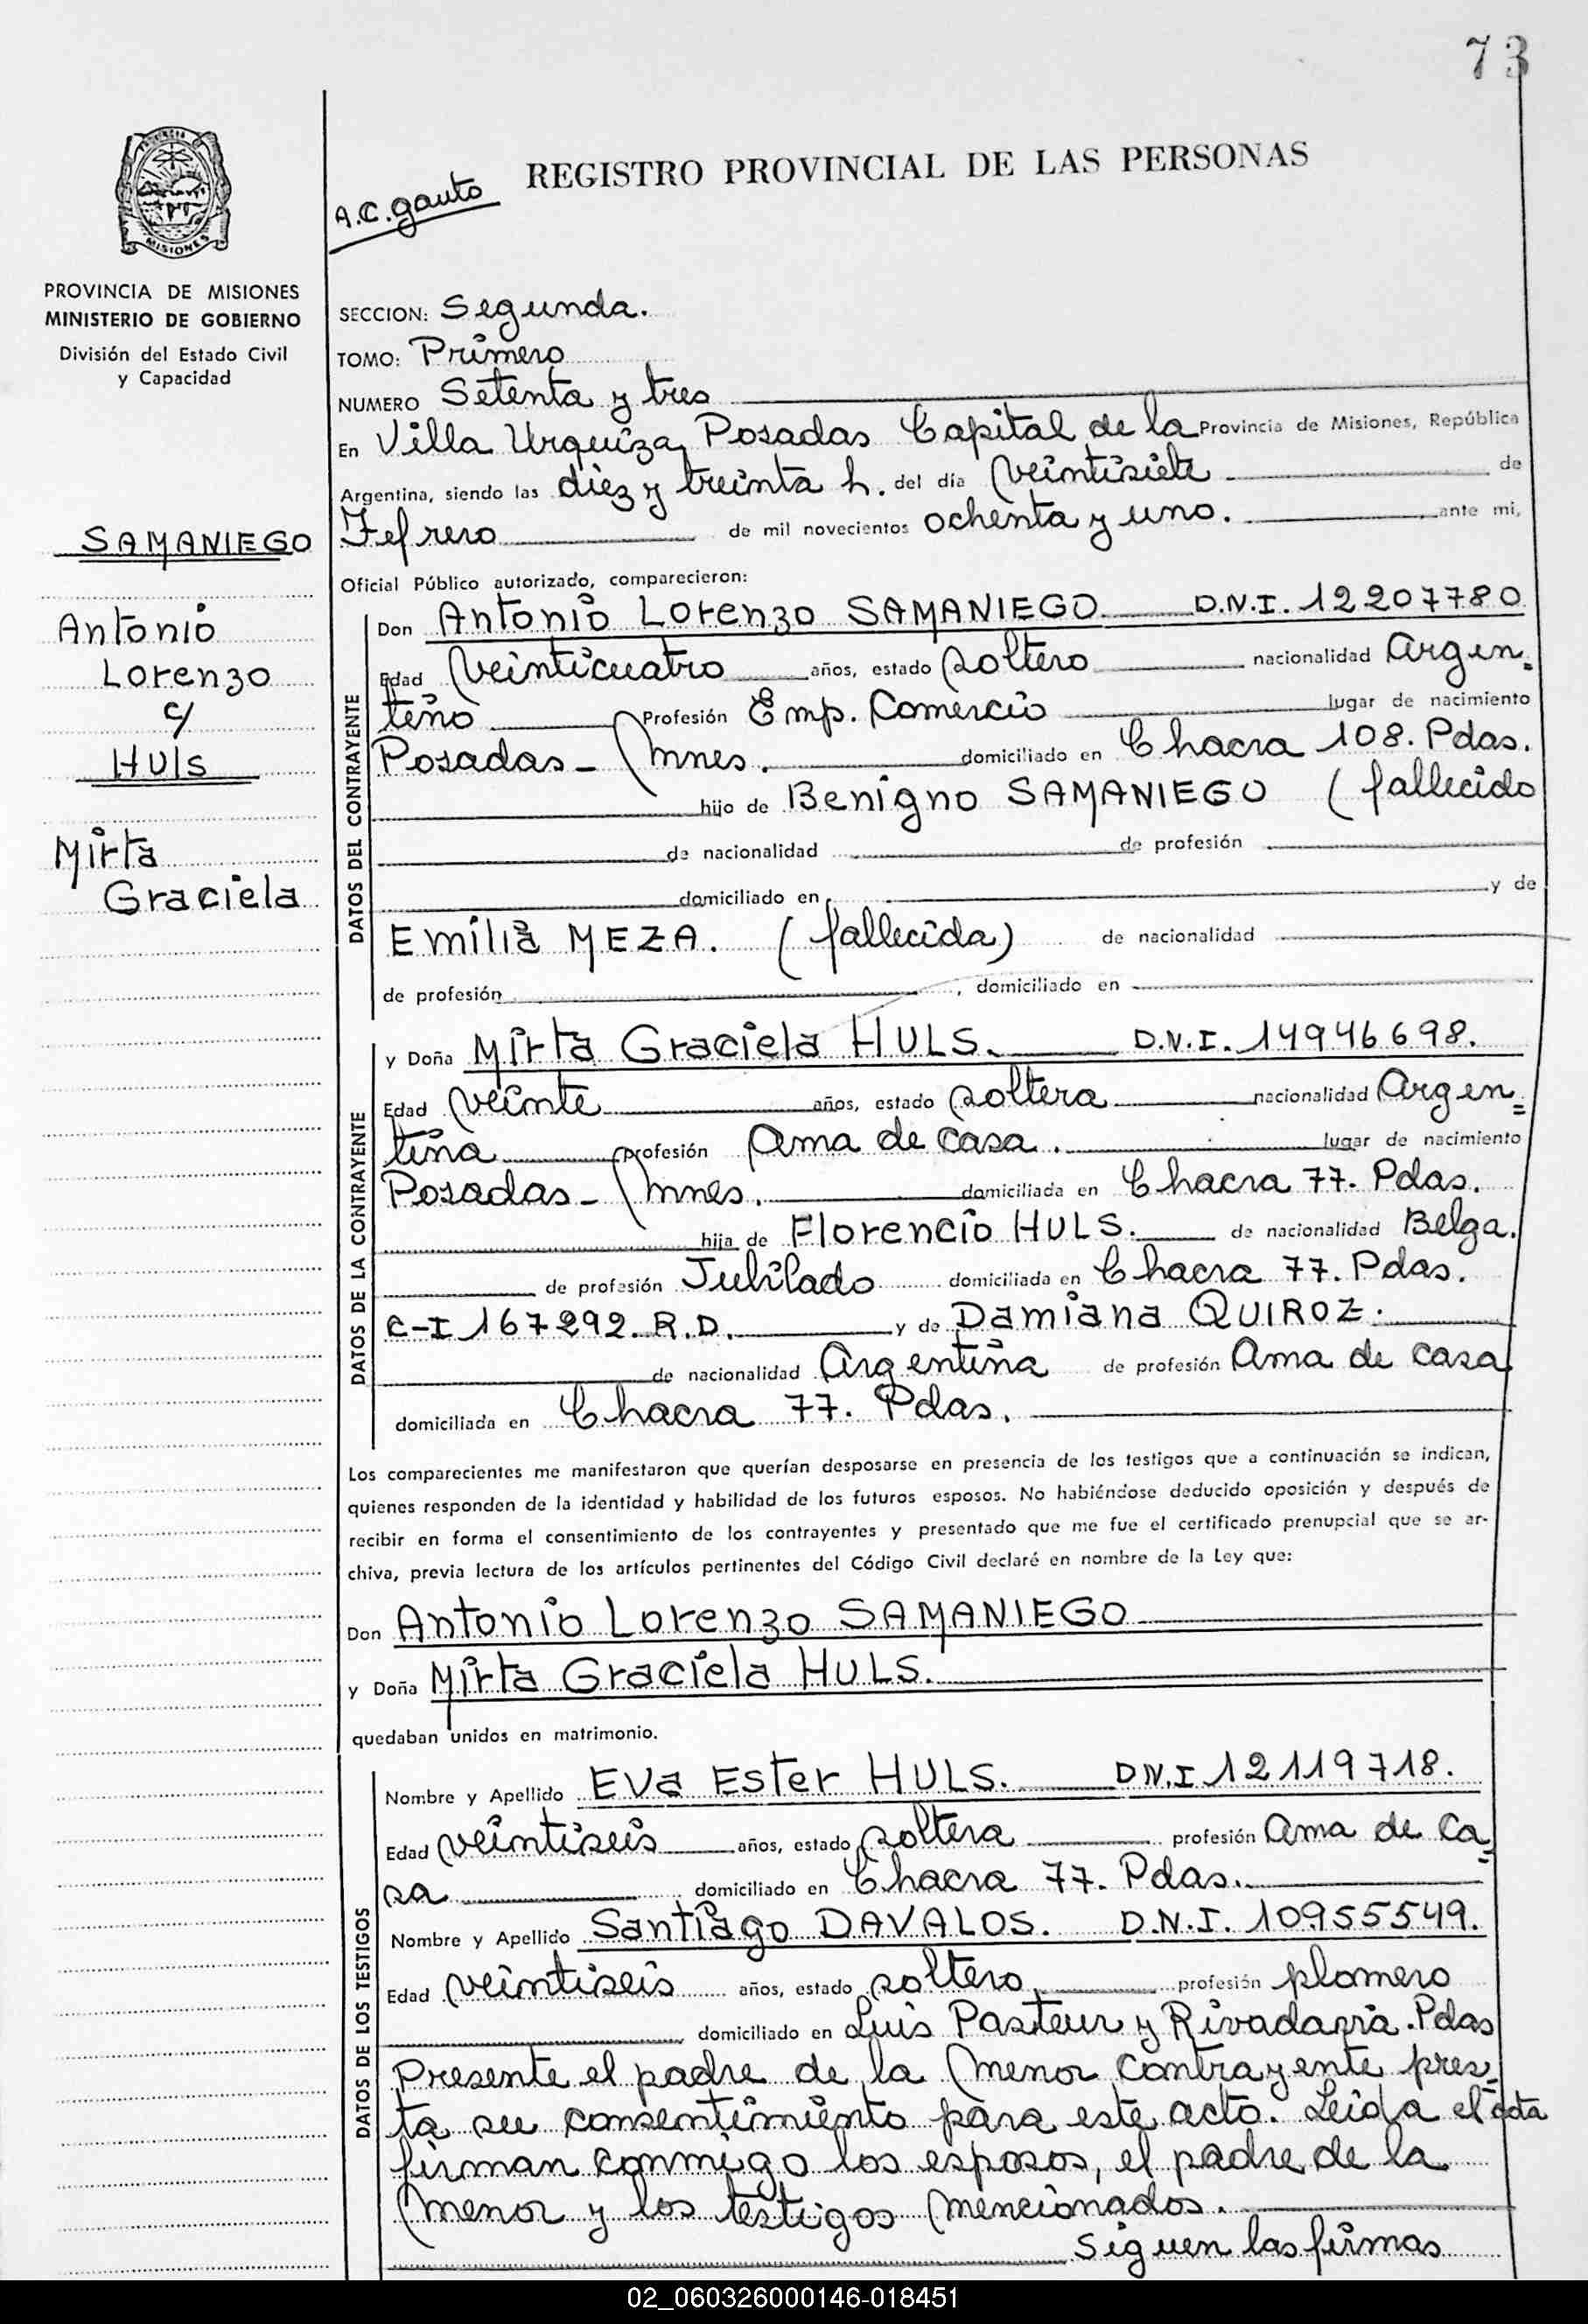 73
REGISTRO PROVINCIAL DE LAS PERSONAS
A.C. gauto
PROVINCIA
MISIONES
PROVINCIA DE MISIONES
MINISTERIO DE GOBIERNO
División del Estado Civil
y Capacidad
SAMANIEGO
Antonio
Lorenzo
c/
HUls
Mirta
Graciela
SECCION: Segunda.
TOMO: Primero
NUMERO Setenta y tres
En Villa Urquiza, Posadas Capital de la Provincia de Misiones, República
Argentina, siendo las diez y treinta h. del día veintisiete de
Febrero de mil novecientos ochenta y uno. ante mi,
Oficial Público autorizado, comparecieron:
DATOS DEL CONTRAYENTE
Don Antonio Lorenzo SAMANIEGO. D.N.I. 12207780
Edad veinticuatro años, estado soltero nacionalidad Argen=
tino Profesión Emp. Comercio lugar de nacimiento
Posadas - Mnes. domiciliado en Chacra 108. Pdas.
hijo de Benigno SAMANIEGO (fallecido
de nacionalidad de profesión
domiciliado en y de
Emilia MEZA. (fallecida) de nacionalidad
de profesión , domiciliado en
DATOS DE LA CONTRAYENTE
y Doña Mirta Graciela HULS. D.N.I. 14946698.
Edad veinte años, estado soltera nacionalidad Argen=
tina profesión Ama de casa. lugar de nacimiento
Posadas - Mnes. domiciliada en Chacra 77. Pdas.
hija de Florencio HULS. de nacionalidad Belga.
de profesión Jubilado domiciliada en Chacra 77. Pdas.
C-I 167292. R.D. y de Damiana QUIROZ.
de nacionalidad Argentina de profesión Ama de casa
domiciliada en Chacra 77. Pdas.
Los comparecientes me manifestaron que querían desposarse en presencia de los testigos que a continuación se indican,
quienes responden de la identidad y habilidad de los futuros esposos. No habiéndose deducido oposición y después de
recibir en forma el consentimiento de los contrayentes y presentado que me fue el certificado prenupcial que se ar-
chiva, previa lectura de los artículos pertinentes del Código Civil declaré en nombre de la Ley que:
Don Antonio Lorenzo SAMANIEGO
y Doña Mirta Graciela HULS.
quedaban unidos en matrimonio.
DATOS DE LOS TESTIGOS
Nombre y Apellido Eva Ester HULS. D.N.I 12119718.
Edad veintiseis años, estado soltera profesión Ama de ca=
sa domiciliado en Chacra 77. Pdas.
Nombre y Apellido Santiago DAVALOS. D.N.I. 10955549.
Edad veintiseis años, estado soltero profesión plomero
domiciliado en Luis Pasteur y Rivadavia. Pdas
Presente el padre de la menor contrayente pres=
ta su consentimiento para este acto. Leida el acta
firman conmigo los esposos, el padre de la
menor y los testigos mencionados.
Siguen las firmas
02_060326000146-018451